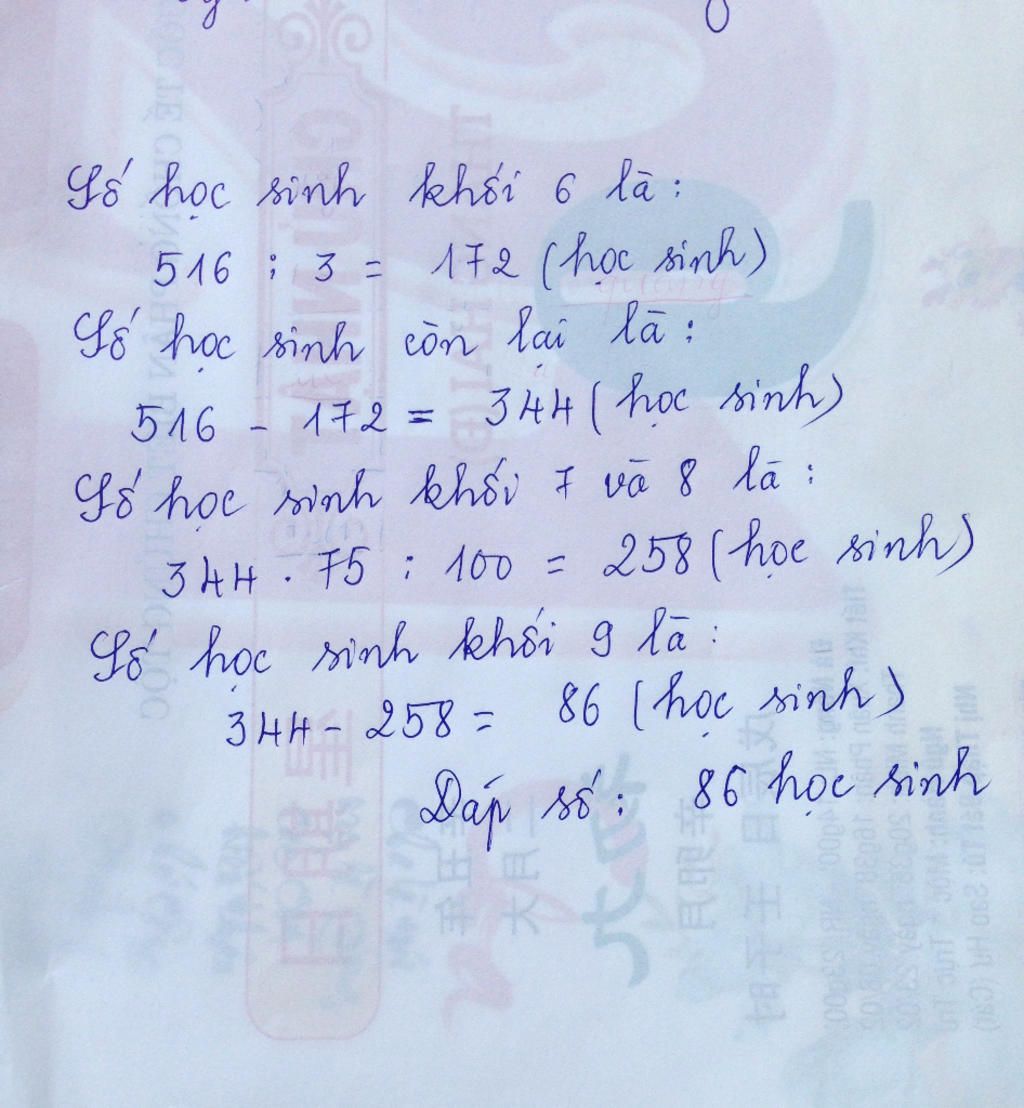 Số học sinh khối 6 là :
516 : 3 = 172 (học sinh)
Số học sinh còn lại là :
516 - 172 = 344 (học sinh)
Số học sinh khối 7 và 8 là :
344 . 75 : 100 = 258 (học sinh)
Số học sinh khối 9 là :
344 - 258 = 86 (học sinh)
Đáp số : 86 học sinh